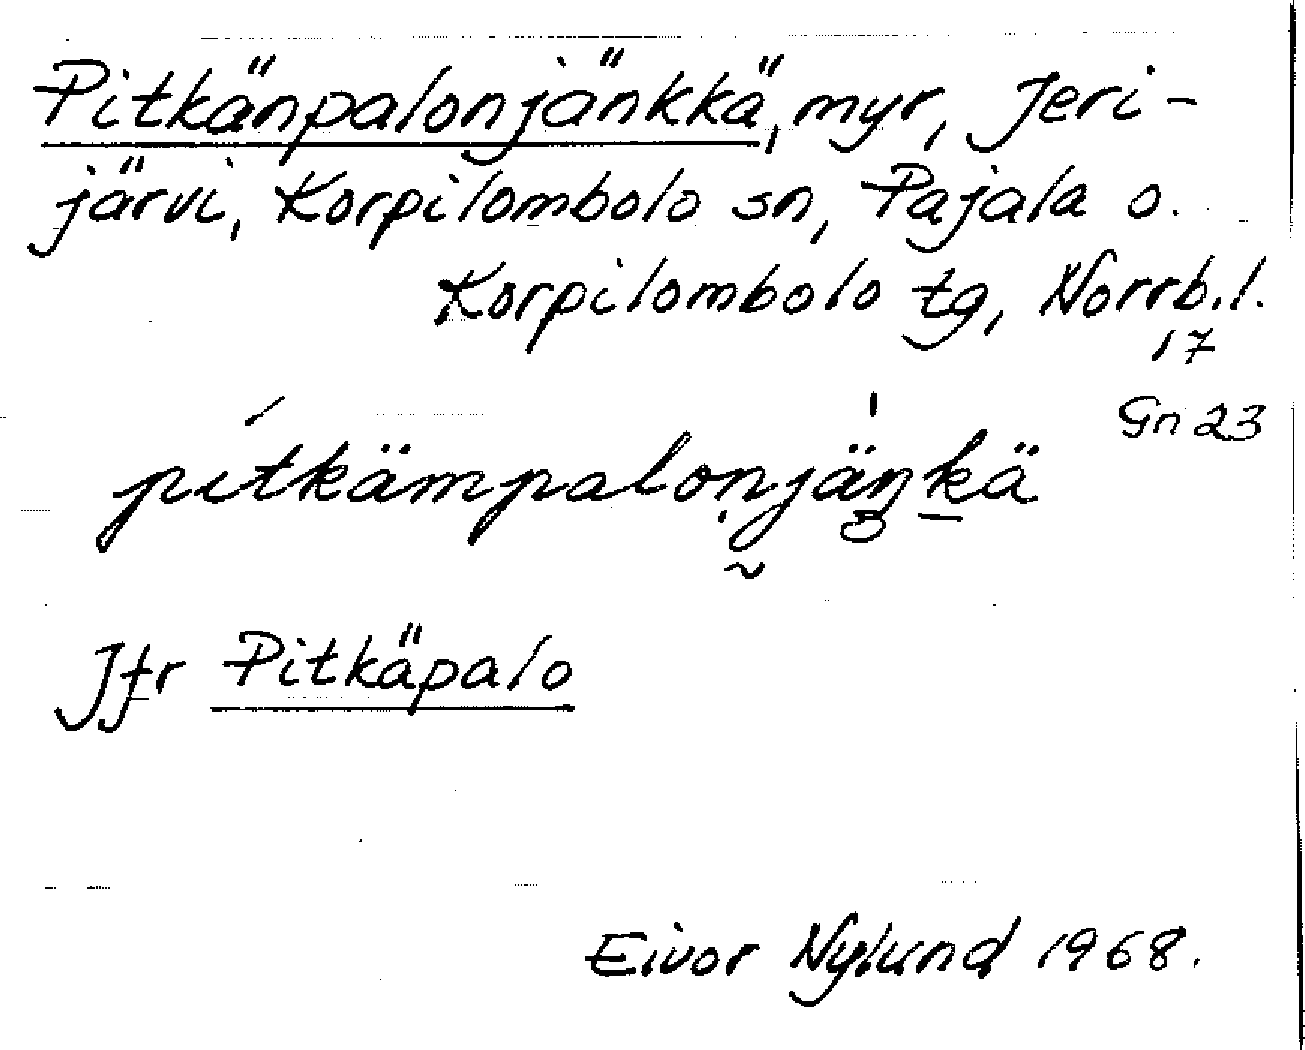 Pitkänpalonjänkkä, myr, Jeri-
järvi, Korpilombolo sn, Pajala o.
Korpilombolo tg, Norrb.l.
17
Gn 23
pitkämpalonjäŋkä
Jfr Pitkäpalo
Eivor Nylund 1968.